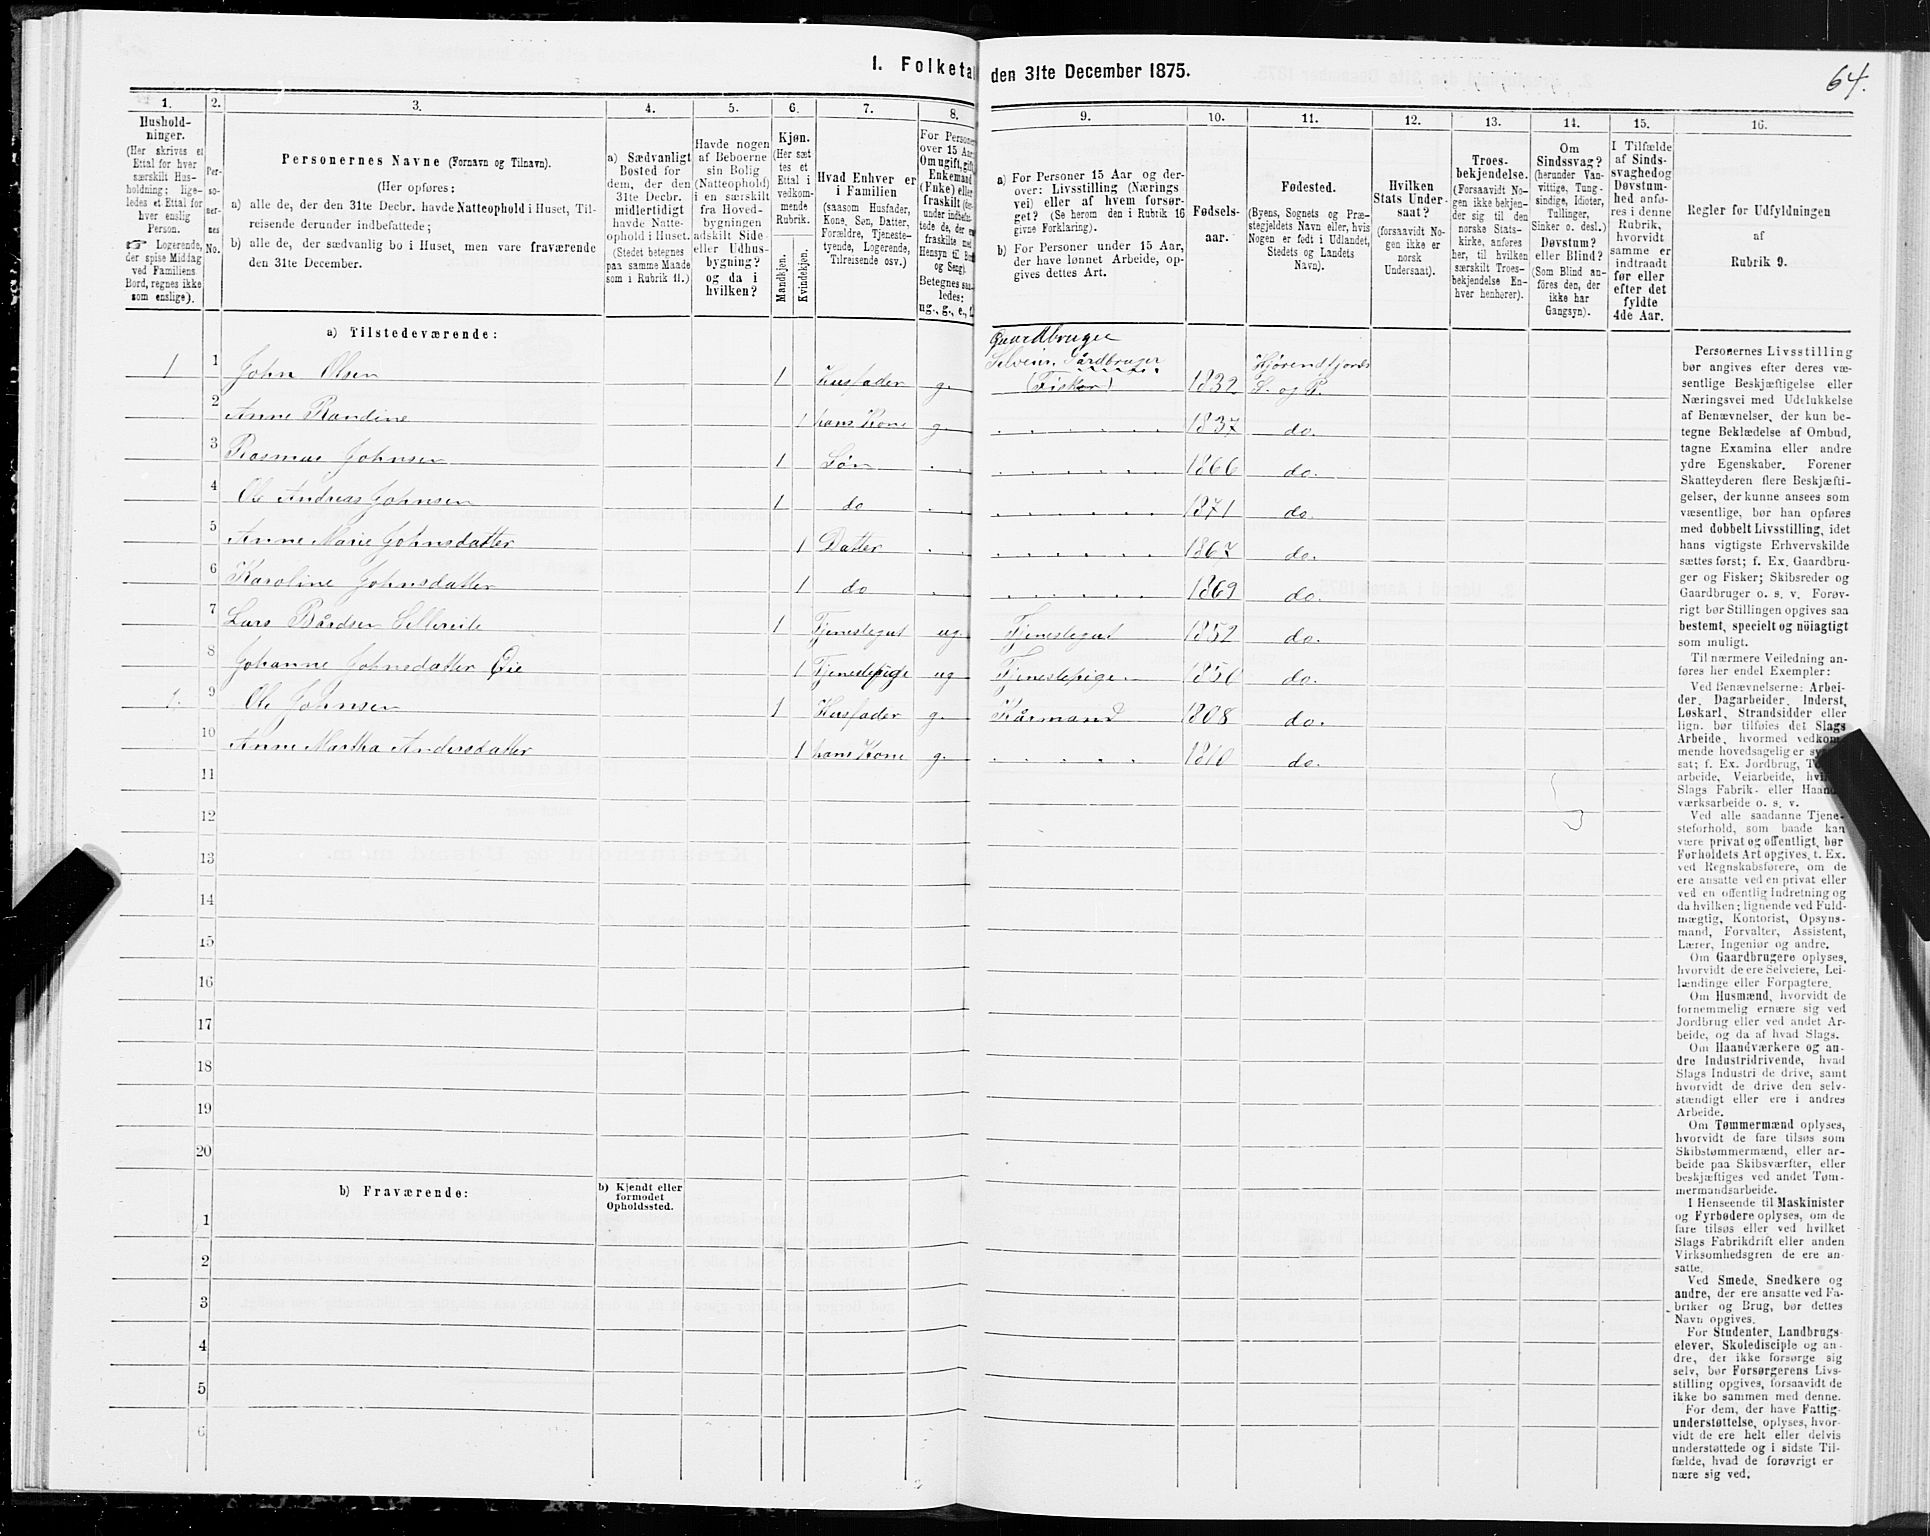 1. Folketal
den 31te December 1875.
64.
1.
Hushold-
ninger.
(Her skrives et
Ettal for hver
særskilt Hus-
holdning; lige-
ledes et Ettal for
hver enslig
Person.
☞ Logerende,
der spise Middag
ved Familiens
Bord, regnes ikke
som enslige).
2.
Per-
so-
ner-
nes
No.
3.
Personernes Navne (Fornavn og Tilnavn).
(Her opføres:
a) alle de, der den 31te Decbr. havde Natteophold i Huset, Til-
reisende derunder indbefattede;
b) alle de, der sædvanlig bo i Huset, men vare fraværende
den 31te December.
4.
a) Sædvanligt
Bosted for
dem, der den
31te Decbr.
midlertidigt
havde Natte-
ophold i Huset.
(Stedet betegnes
paa samme Maade
som i Rubrik 11.)
5.
Havde nogen
af Beboerne
sin Bolig
(Natteophold)
i en særskilt
fra Hoved-
bygningen
adskilt Side-
eller Udhus-
bygning?
og da i
hvilken?
6.
Kjøn.
(Her sæt
tes et
Ettal i
vedkom-
mende
Rubrik.
Mandkjøn.
Kvindekjøn.
7.
Hvad Enhver er
i Familien
(saasom Husfader,
Kone, Søn, Datter,
Forældre, Tjeneste-
tyende, Logerende,
Tilreisende osv.)
8.
For Personer
over 15 Aar
Om ugift, gift,
Enkemand
(Enke) eller
fraskilt
Betegnes saa-
ledes:
ug., g., e., f.
9.
a) For Personer 15 Aar og der-
over: Livsstilling (Nærings
vei) eller af hvem forsør-
get? (Se herom den i Rubrik 16
givne Forklaring).
b) For Personer under 15 Aar,
der have lønnet Arbeide, op-
gives dettes Art.
10.
Fødsels-
aar.
11.
Fødested.
(Byens, Sognets og Præ-
stegjeldets Navn eller, hvis
Nogen er født i Udlandet,
Stedets og Landets
Navn).
12.
Hvilken
Stats Under-
saat?
(forsaavidt No-
gen ikke er
norsk
Undersaat).
13.
Troes-
bekjendelse.
(Forsaavidt No-
gen ikke bekjen-
der sig til den
norske Stats-
kirke, anføres
her, til hvilken
særskilt Troes-
bekjendelse En-
hver henhører).
14.
Om
Sindssvag?
(herunder Van-
vittige, Tung-
sindige, Idioter,
Tullinger,
Sinker o. desl.)
Døvstum?
eller Blind?
(Som Blind an-
føres den, der
ikke har
Gangsyn).
15.
I Tilfælde
af Sinds-
svaghedog
Døvstum-
hed anfø-
res i denne
Rubrik,
hvorvidt
samme er
indtraadt
før eller
efter det
fyldte
4de Aar.
16.
Regler før Udfyldningen
af
Rubrik 9.
a) Tilstedeværende:
Gaardbruger
1 1 John Olsen 1 Husfader g. Selveier, Gårdbruger (Fisker) 1832 Hjørendfjords S. og P.
2 Anne Randine 1 hans Kone g. 1837 do.
3 Rasmus Johnsen 1 Søn 1866 do.
4 Ole Andreas Johnsen 1 do 1871 do.
5 Anne Marie Johnsdatter 1 Datter 1867 do.
6 Karoline Johnsdatter 1 do 1869 do.
7 Lars Bårdsen 1 Tjenestegut ug. Tjenestegut 1852 do.
8 Johanne Johnsdatter Øie 1 Tjenestepige ug Tjenestepige 1850 do.
1. 9 Ole Johnsen 1 Husfader g. Kårmand 1808 do.
10 Anne Martha Andersdatter 1 hans Kone g. 1810 do.
11
12
13
14
15
16
17
18
19
20
b) Fraværende:
b) Kjendt eller
formodet
Opholdssted.
1
2
3
4
5
6
Personernes Livsstilling
bør angives efter deres væ-
sentlige Beskjæftigelse eller
Næringsvei med Udelukkelse
af Benævnelser, der kun be-
tegne Beklædelse af Ombud,
tagne Examina eller andre
ydre Egenskaber. Forener
Skatteyderen flere Beskjæfti-
gelser, der kunne ansees som
væsentlige, bør han opføres
med dobbelt Livsstilling, idet
hans vigtigste Erhvervskilde
sættes først; f. Ex. Gaardbru-
ger og Fisker; Skibsreder og
Gaardbruger o. s. v. Forøv-
rigt bør Stillingen opgives saa
bestemt, specielt og nöiagtigt
som muligt.
Til nærmere Veiledning an-
føres her endel Exempler:
Ved Benævnelserne: Arbei-
der, Dagarbeider, Inderst,
Løskarl, Strandsidder eller
lign. bør tilføies det Slags
Arbeide, hvormed vedkom-
mende hovedsagelig er
sat; f. Ex. Jordbrug,
arbeide, Veiarbeide,
Slags Fabrik- eller Haand-
værksarbeide o. s. v.
Ved alle saadanne Tjene-
steforhold, som baade kan
være privat og offentligt, bør
Forholdets Art opgives, t. Ex.
ved Regnskabsførere, om de
ere ansatte ved en privat eller
ved en offentlig Indretning og
da hvilken; lignende ved Fuld-
mægtig, Kontorist, Opsyns-
mand, Forvalter, Assistent,
Lærer, Ingeniør og andre.
Om Gaardbrugere oplyses,
hvorvidt de ere Selveiere, Lei-
lændinge eller Forpagtere.
Om Husmænd, hvorvidt de
fornemmelig ernære sig ved
Jordbrug eller ved andet Ar-
beide, og da af hvad Slags.
Om Haandværkere og an-
dre Industridrivende, hvad
Slags Industri de drive, samt
hvorvidt de drive den selv-
stændigt eller ere i andres
Arbeide.
Om Tømmermænd oplyses,
hvorvidt de fare tilsøs som
Skibstømmermænd, eller ar-
beide paa Skibsværfter, eller
beskjæftiges ved andet Tøm-
mermandsarbeide.
I Henseende til Maskinister
og Fyrbødere oplyses, om de
fare tilsøs eller ved hvilket
Slags Fabrikdrift eller anden
Virksomhedsgren de ere an-
satte.
Ved Smede, Snedkere og
andre, der ere ansatte ved Fa-
briker og Brug, bør dettes
Navn opgives.
For Studenter, Landbrugs-
elever, Skoledisciple og an-
dre, der ikke forsørge sig
selv, bør Forsørgerens Livs-
stilling opgives, forsaavidt de
ikke bo sammen med denne.
For dem, der have Fattig-
understøttelse, oplyses, hvor-
vidt de ere helt eller delvis
understøttede og i sidste Til-
fælde, hvad de forøvrigt er
nære sig ved.